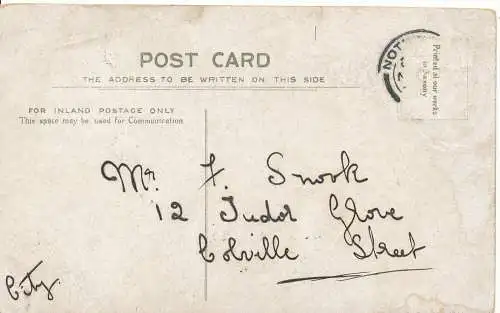 POST CARD
THE ADDRESS TO BE WRITTEN ON THIS SIDE
NOT
Printed at our works
in Saxony
FOR INLAND POSTAGE ONLY
This space may be used for Communication
Mr F. Snook
12 Tudor Glove
Colville Street
City.